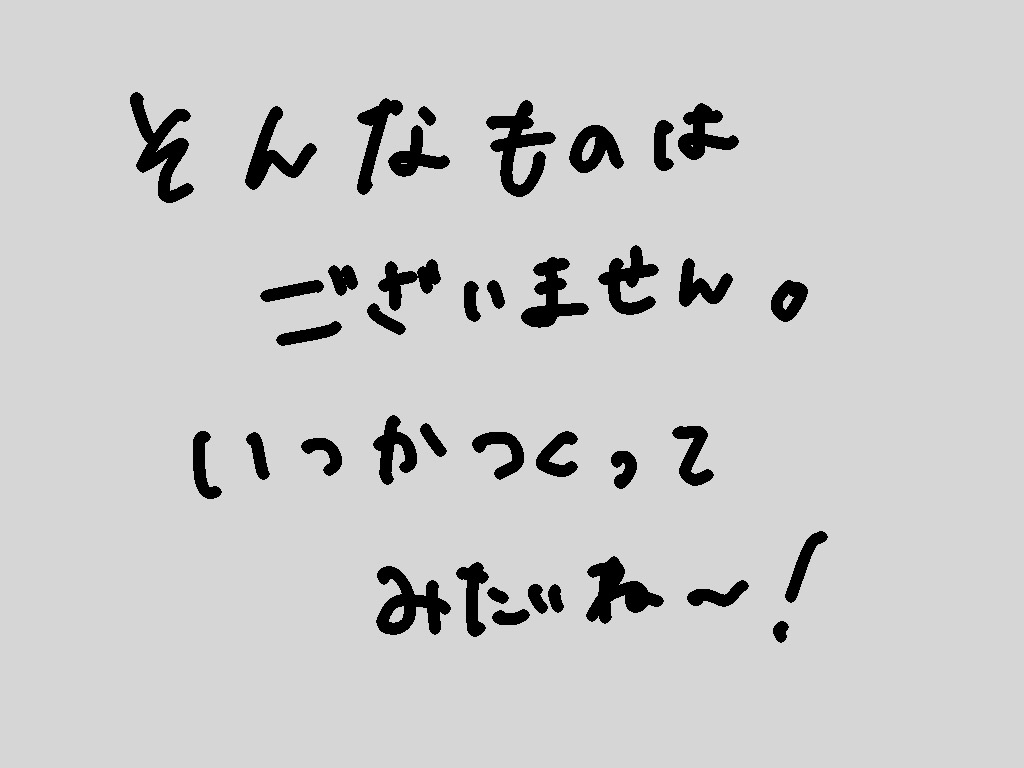 そんなものは
ございません。
いつかつくって
みたいね〜！